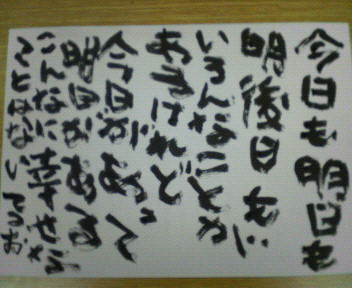 今日も明日も
明後日も
いろんなことが
あるけれど
今日があって
明日がある
こんなに幸せな
ことはない てつお